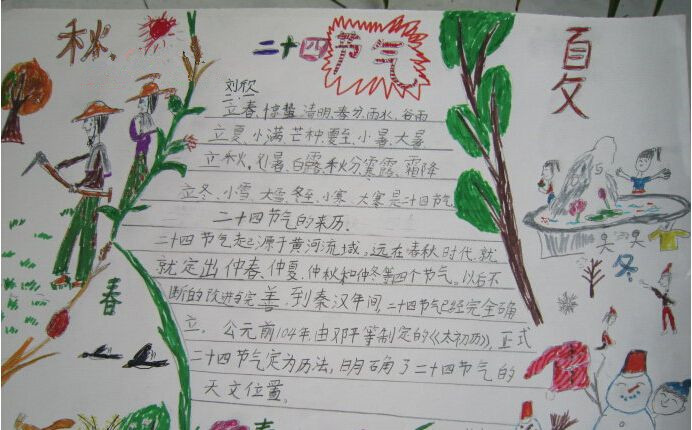 秋
二十四节气
夏
刘欣
立春、惊蛰、清明、春分、雨水、谷雨
立夏、小满、芒种、夏至、小暑、大暑
立秋、处暑、白露、秋分、寒露、霜降
立冬、小雪、大雪、冬至、小寒、大寒是二十四节气。
二十四节气的来历.
二十四节气起源于黄河流域,远在春秋时代,就
就定出仲春、仲夏、仲秋和仲冬等四个节气。以后不
断的改进与完善,到秦汉年间,二十四节气已经完全确
立。公元前104年,由邓平等制定的《太初历》,正式
二十四节气定为历法,明确了二十四节气的
天文位置。
春
冬